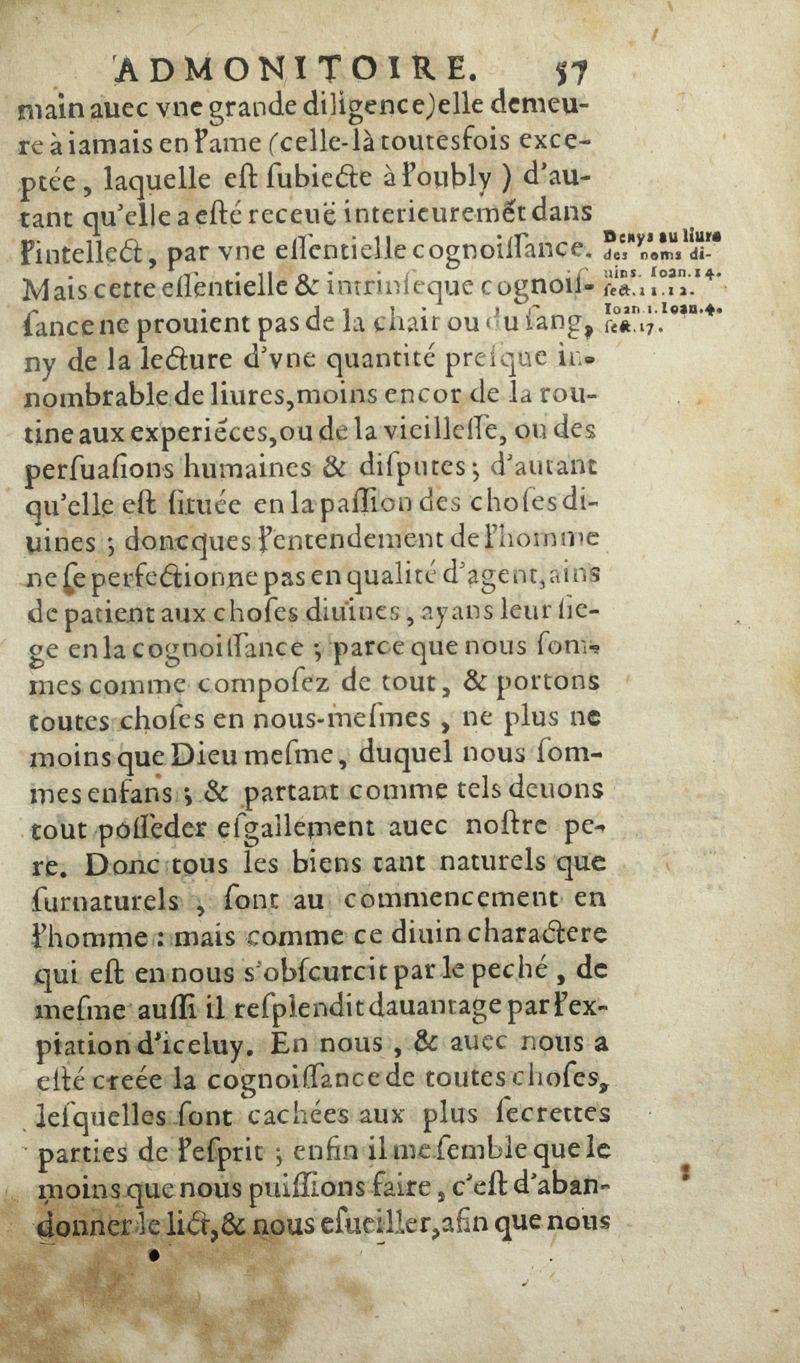 ADMONITOIRE. 57
main auec vne grande diligence) elle demeu-
re à iamais en l'ame (celle-là toutesfois exce-
ptée, laquelle eſt ſubiecte à l'oubly) d'au-
tant qu'elle a eſté receuë interieuremẽt dans
l'intellect, par vne eſſentielle cognoiſſance.
Mais cette eſſentielle & intrinſeque cognoiſ-
ſance ne prouient pas de la chair ou du ſang,
ny de la lecture d'vne quantité preſque in-
nombrable de liures, moins encor de la rou-
tine aux experiéces, ou de la vieilleſſe, ou des
perſuaſions humaines & diſputes; d'autant
qu'elle eſt ſituée en la paſſion des choſes di-
uines; doncques l'entendement de l'homme
ne ſe perfectionne pas en qualité d'agent, ains
de patient aux choſes diuines, ayans leur ſie-
ge en la cognoiſſance; parce que nous ſom-
mes comme compoſez de tout, & portons
toutes choſes en nous-meſmes, ne plus ne
moins que Dieu meſme, duquel nous ſom-
mes enfans; & partant comme tels deuons
tout poſſeder eſgallement auec noſtre pe-
re. Donc tous les biens tant naturels que
ſurnaturels, ſont au commencement en
l'homme: mais comme ce diuin charactere
qui eſt en nous s'obſcurcit par le peché, de
meſme auſſi il reſplendit dauantage par l'ex-
piation d'iceluy. En nous, & auec nous a
eſté creée la cognoiſſance de toutes choſes,
leſquelles ſont cachées aux plus ſecrettes
parties de l'eſprit; enfin il me ſemble que le
moins que nous puiſſions faire, c'eſt d'aban-
donner le lict, & nous eſueiller, afin que nous
Denys au liure
des noms di-
uins. Ioan. 14.
ſect. 11. 12.
Ioan 1. Ioan. 4.
ſect. 17.